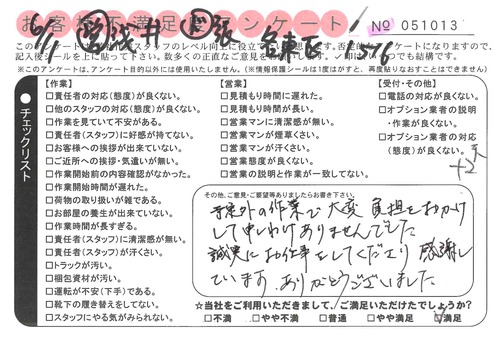 お客様不満足度アンケート
№ 051013
6/1 浅井 張 名東区
このアンケートは
スタッフのレベル向上に役立て
記入後シールを上に貼って下さい。数多くの正直なご意見を
でも結構です。
※このアンケートは、アンケート目的以外には使用いたしません。(※情報保護シールは1度はがすと、再度貼りなおすことはできません)
チェックリスト
【作業】
□責任者の対応(態度)が良くない。
□他のスタッフの対応(態度)が良くない。
□作業を見ていて不安がある。
□責任者(スタッフ)に好感が持てない。
□お客様への挨拶が出来ていない。
□ご近所への挨拶・気遣いが無い。
□作業開始前の内容確認がなかった。
□作業開始時間が遅れた。
□荷物の取り扱いが雑である。
□お部屋の養生が出来ていない。
□作業時間が長すぎる。
□責任者(スタッフ)に清潔感が無い。
□責任者(スタッフ)が汗くさい。
□トラックが汚い。
□梱包資材が汚い。
□運転が不安(下手)である。
□靴下の履き替えをしてない。
□スタッフにやる気がみられない。
【営業】
□見積もり時間に遅れた。
□見積もり時間が長い。
□営業マンに清潔感が無い。
□営業マンが煙草くさい。
□営業マンが汗くさい。
□営業態度が良くない。
□営業の説明と作業が一致してない。
【受付・その他】
□電話の対応が良くない。
□オプション業者の説明
・作業が良くない。
□オプション業者の対応
(態度)が良くない。
その他、ご意見・ご要望等ありましたらお書き下さい。
予定外の作業で大変負担をおかけ
して申しわけありませんでした
誠実にお仕事をしてくださり感謝し
ています。ありがとうございました
☆当社をご利用いただきまして、ご満足いただけたでしょうか?
□不満 □やや不満 □普通 □やや満足 ☑満足